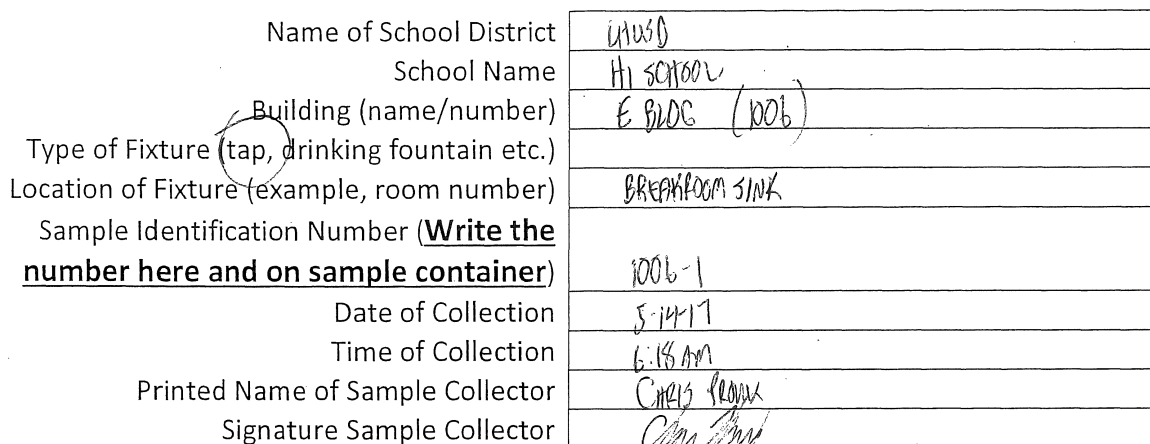 Name of School District
School Name HI SCHOOL
Building (name/number) E BLDG (1006)
Type of Fixture (tap, drinking fountain etc.)
Location of Fixture (example, room number) BREAKROOM SINK
Sample Identification Number (Write the
number here and on sample container) 1006-1
Date of Collection 5-14-17
Time of Collection 6:18 AM
Printed Name of Sample Collector CHRIS
Signature Sample Collector